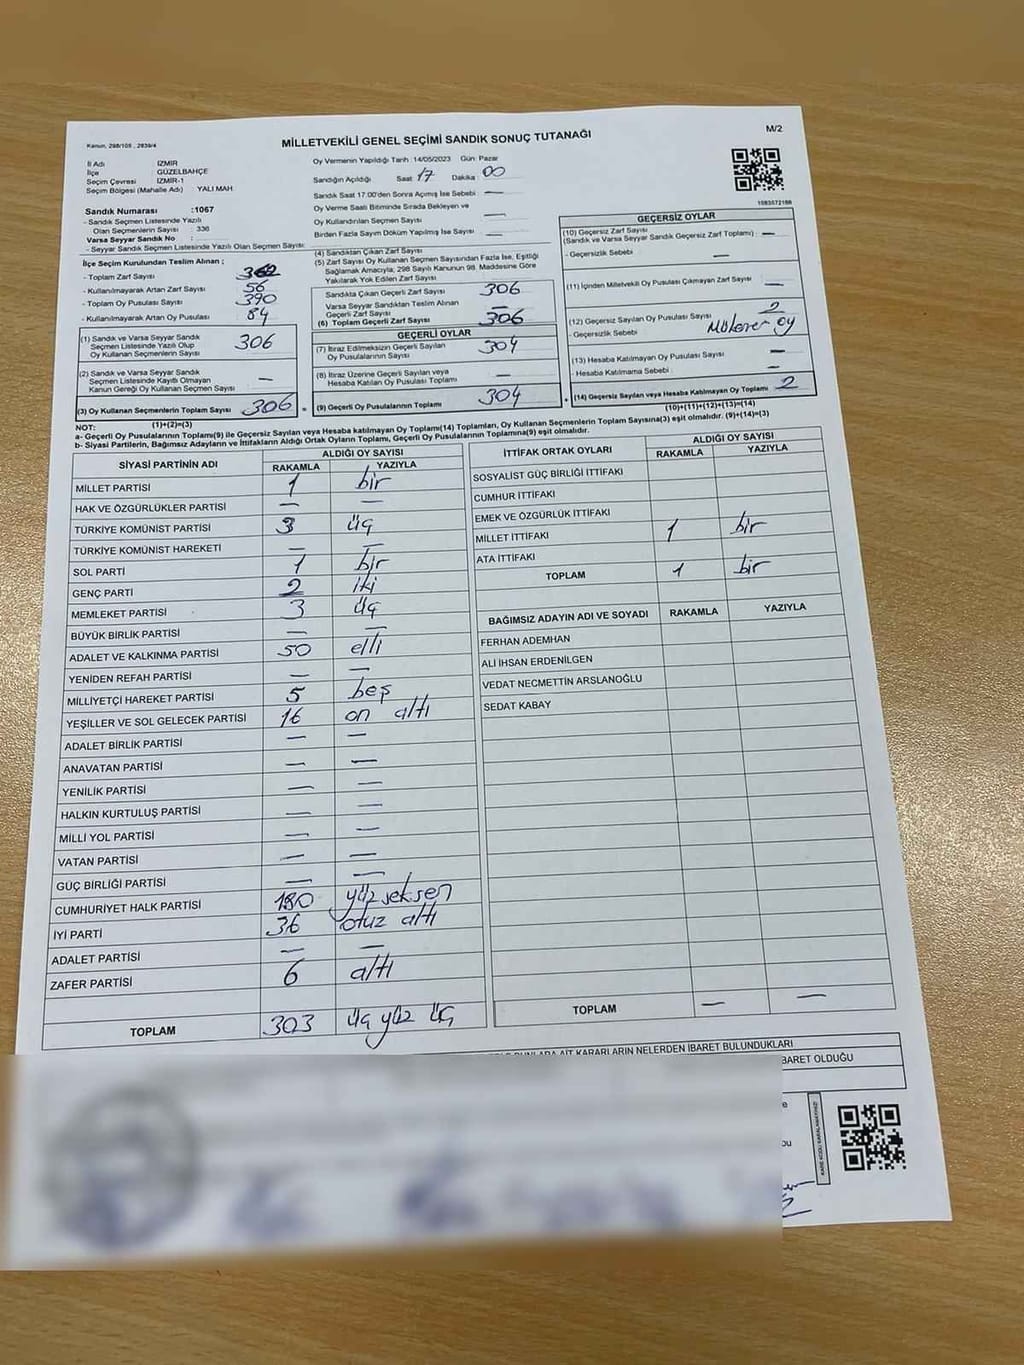 Kanun, 298/105 , 2839/4
MİLLETVEKİLİ GENEL SEÇİMİ SANDIK SONUÇ TUTANAĞI
M/2
İli Adı İZMİR
İlçe GÜZELBAHÇE
Seçim Çevresi İZMİR-1
Seçim Bölgesi (Mahalle Adı) YALI MAH
Sandık Numarası :1067
- Sandık Seçmen Listesinde Yazılı
Olan Seçmenlerin Sayısı : 336
Varsa Seyyar Sandık No :
- Seyyar Sandık Seçmen Listesinde Yazılı Olan Seçmen Sayısı:
Oy Vermenin Yapıldığı Tarih :14/05/2023 Gün: Pazar
Sandığın Açıldığı Saat 17 Dakika 00
Sandık Saat 17.00'den Sonra Açımış İse Sebebi —
Oy Verme Saati Bitiminde Sırada Bekleyen ve
Oy Kullandırılan Seçmen Sayısı —
Birden Fazla Sayım Döküm Yapılmış İse Sayısı —
1083072188
İlçe Seçim Kurulundan Teslim Alınan ;
- Toplam Zarf Sayısı 362
- Kullanılmayarak Artan Zarf Sayısı 56
- Toplam Oy Pusulası Sayısı 390
- Kullanılmayarak Artan Oy Pusulası 84
(1) Sandık ve Varsa Seyyar Sandık
Seçmen Listesinde Yazılı Olup
Oy Kullanan Seçmenlerin Sayısı 306
(2) Sandık ve Varsa Seyyar Sandık
Seçmen Listesinde Kayıtlı Olmayan
Kanun Gereği Oy Kullanan Seçmen Sayısı —
(3) Oy Kullanan Seçmenlerin Toplam Sayısı 306
(1)+(2)=(3)
(4) Sandıktan Çıkan Zarf Sayısı
(5) Zarf Sayısı Oy Kullanan Seçmen Sayısından Fazla İse, Eşitliği
Sağlamak Amacıyla; 298 Sayılı Kanunun 98. Maddesine Göre
Yakılarak Yok Edilen Zarf Sayısı
Sandıkta Çıkan Geçerli Zarf Sayısı 306
Varsa Seyyar Sandıktan Teslim Alınan
Geçerli Zarf Sayısı —
(6) Toplam Geçerli Zarf Sayısı 306
GEÇERLİ OYLAR
(7) İtiraz Edilmeksizin Geçerli Sayılan
Oy Pusulalarının Sayısı 304
(8) İtiraz Üzerine Geçerli Sayılan veya
Hesaba Katılan Oy Pusulası Toplamı —
(9) Geçerli Oy Pusulalarının Toplamı 304
GEÇERSİZ OYLAR
(10) Geçersiz Zarf Sayısı
(Sandık ve Varsa Seyyar Sandık Geçersiz Zarf Toplamı) —
- Geçersizlik Sebebi —
(11) İçinden Milletvekili Oy Pusulası Çıkmayan Zarf Sayısı —
(12) Geçersiz Sayılan Oy Pusulası Sayısı 2
- Geçersizlik Sebebi Mükerrer oy
(13) Hesaba Katılmayan Oy Pusulası Sayısı —
- Hesaba Katılmama Sebebi —
(14) Geçersiz Sayılan veya Hesaba Katılmayan Oy Toplamı 2
(10)+(11)+(12)+(13)=(14)
NOT:
a- Geçerli Oy Pusulalarının Toplamı(9) ile Geçersiz Sayılan veya Hesaba katılmayan Oy Toplam(14) Toplamları, Oy Kullanan Seçmenlerin Toplam Sayısına(3) eşit olmalıdır. (9)+(14)=(3)
b- Siyasi Partilerin, Bağımsız Adayların ve İttifakların Aldığı Ortak Oyların Toplamı, Geçerli Oy Pusulalarının Toplamına(9) eşit olmalıdır.
SİYASİ PARTİNİN ADI ALDIĞI OY SAYISI
RAKAMLA YAZIYLA
MİLLET PARTİSİ 1 bir
HAK VE ÖZGÜRLÜKLER PARTİSİ — —
TÜRKİYE KOMÜNİST PARTİSİ 3 üç
TÜRKİYE KOMÜNİST HAREKETİ — —
SOL PARTİ 1 bir
GENÇ PARTİ 2 iki
MEMLEKET PARTİSİ 3 üç
BÜYÜK BİRLİK PARTİSİ — —
ADALET VE KALKINMA PARTİSİ 50 elli
YENİDEN REFAH PARTİSİ — —
MİLLİYETÇİ HAREKET PARTİSİ 5 beş
YEŞİLLER VE SOL GELECEK PARTİSİ 16 on altı
ADALET BİRLİK PARTİSİ — —
ANAVATAN PARTİSİ — —
YENİLİK PARTİSİ — —
HALKIN KURTULUŞ PARTİSİ — —
MİLLİ YOL PARTİSİ — —
VATAN PARTİSİ — —
GÜÇ BİRLİĞİ PARTİSİ — —
CUMHURİYET HALK PARTİSİ 180 yüz seksen
İYİ PARTİ 36 otuz altı
ADALET PARTİSİ — —
ZAFER PARTİSİ 6 altı
TOPLAM 303 üç yüz üç
İTTİFAK ORTAK OYLARI ALDIĞI OY SAYISI
RAKAMLA YAZIYLA
SOSYALİST GÜÇ BİRLİĞİ İTTİFAKI
CUMHUR İTTİFAKI
EMEK VE ÖZGÜRLÜK İTTİFAKI
MİLLET İTTİFAKI 1 bir
ATA İTTİFAKI
TOPLAM 1 bir
BAĞIMSIZ ADAYIN ADI VE SOYADI RAKAMLA YAZIYLA
FERHAN ADEMHAN
ALİ İHSAN ERDENİLGEN
VEDAT NECMETTİN ARSLANOĞLU
SEDAT KABAY
TOPLAM — —
BUNLARA AİT KARARLARIN NELERDEN İBARET BULUNDUKLARI
BARET OLDUĞU